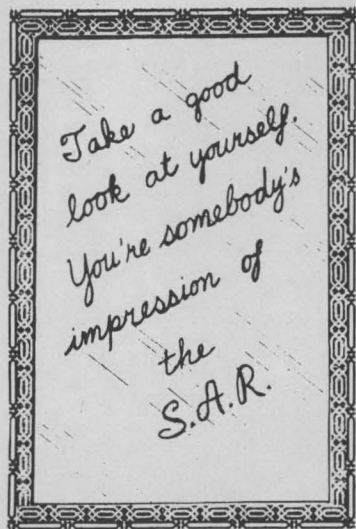 Take a good
look at yourself.
You're somebody's
impression of
the
S.A.R.